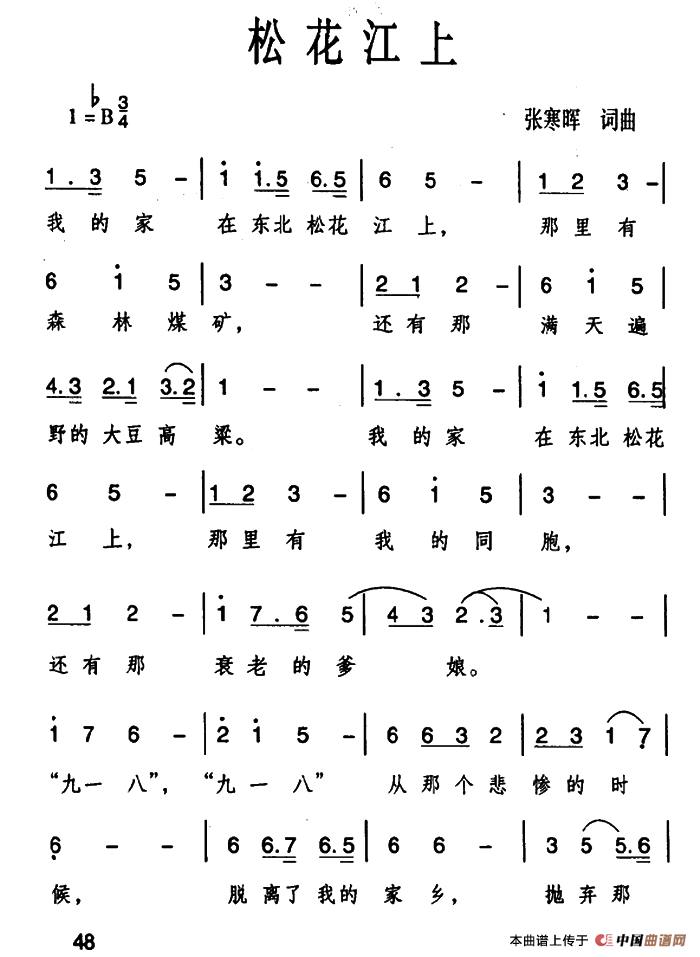 松花江上
1=♭B 3/4
张寒晖 词曲
1. 3 5 - | i i.5 6.5 | 6 5 - | 1 2 3 - |
我的家 在东北松花江上，那里有
6 i 5 | 3 - - | 2 1 2 - | 6 i 5 |
森林煤矿，还有那满天遍
4.3 2.1 3.2 | 1 - - | 1. 3 5 - | i 1.5 6.5 |
野的大豆高粱。我的家在东北松花
6 5 - | 1 2 3 - | 6 i 5 | 3 - - |
江上，那里有我的同胞，
2 1 2 - | i 7. 6 5 | 4 3 2.3 | 1 - - |
还有那衰老的爹娘。
i 7 6 - | 2 i 5 - | 6 6 3 2 | 2 3 1 7 |
“九一八”，“九一八”从那个悲惨的时
6 - - | 6 6.7 6.5 | 6 6 - | 3 5 5.6 |
候，脱离了我的家乡，抛弃那
48
本曲谱上传于 中国曲谱网